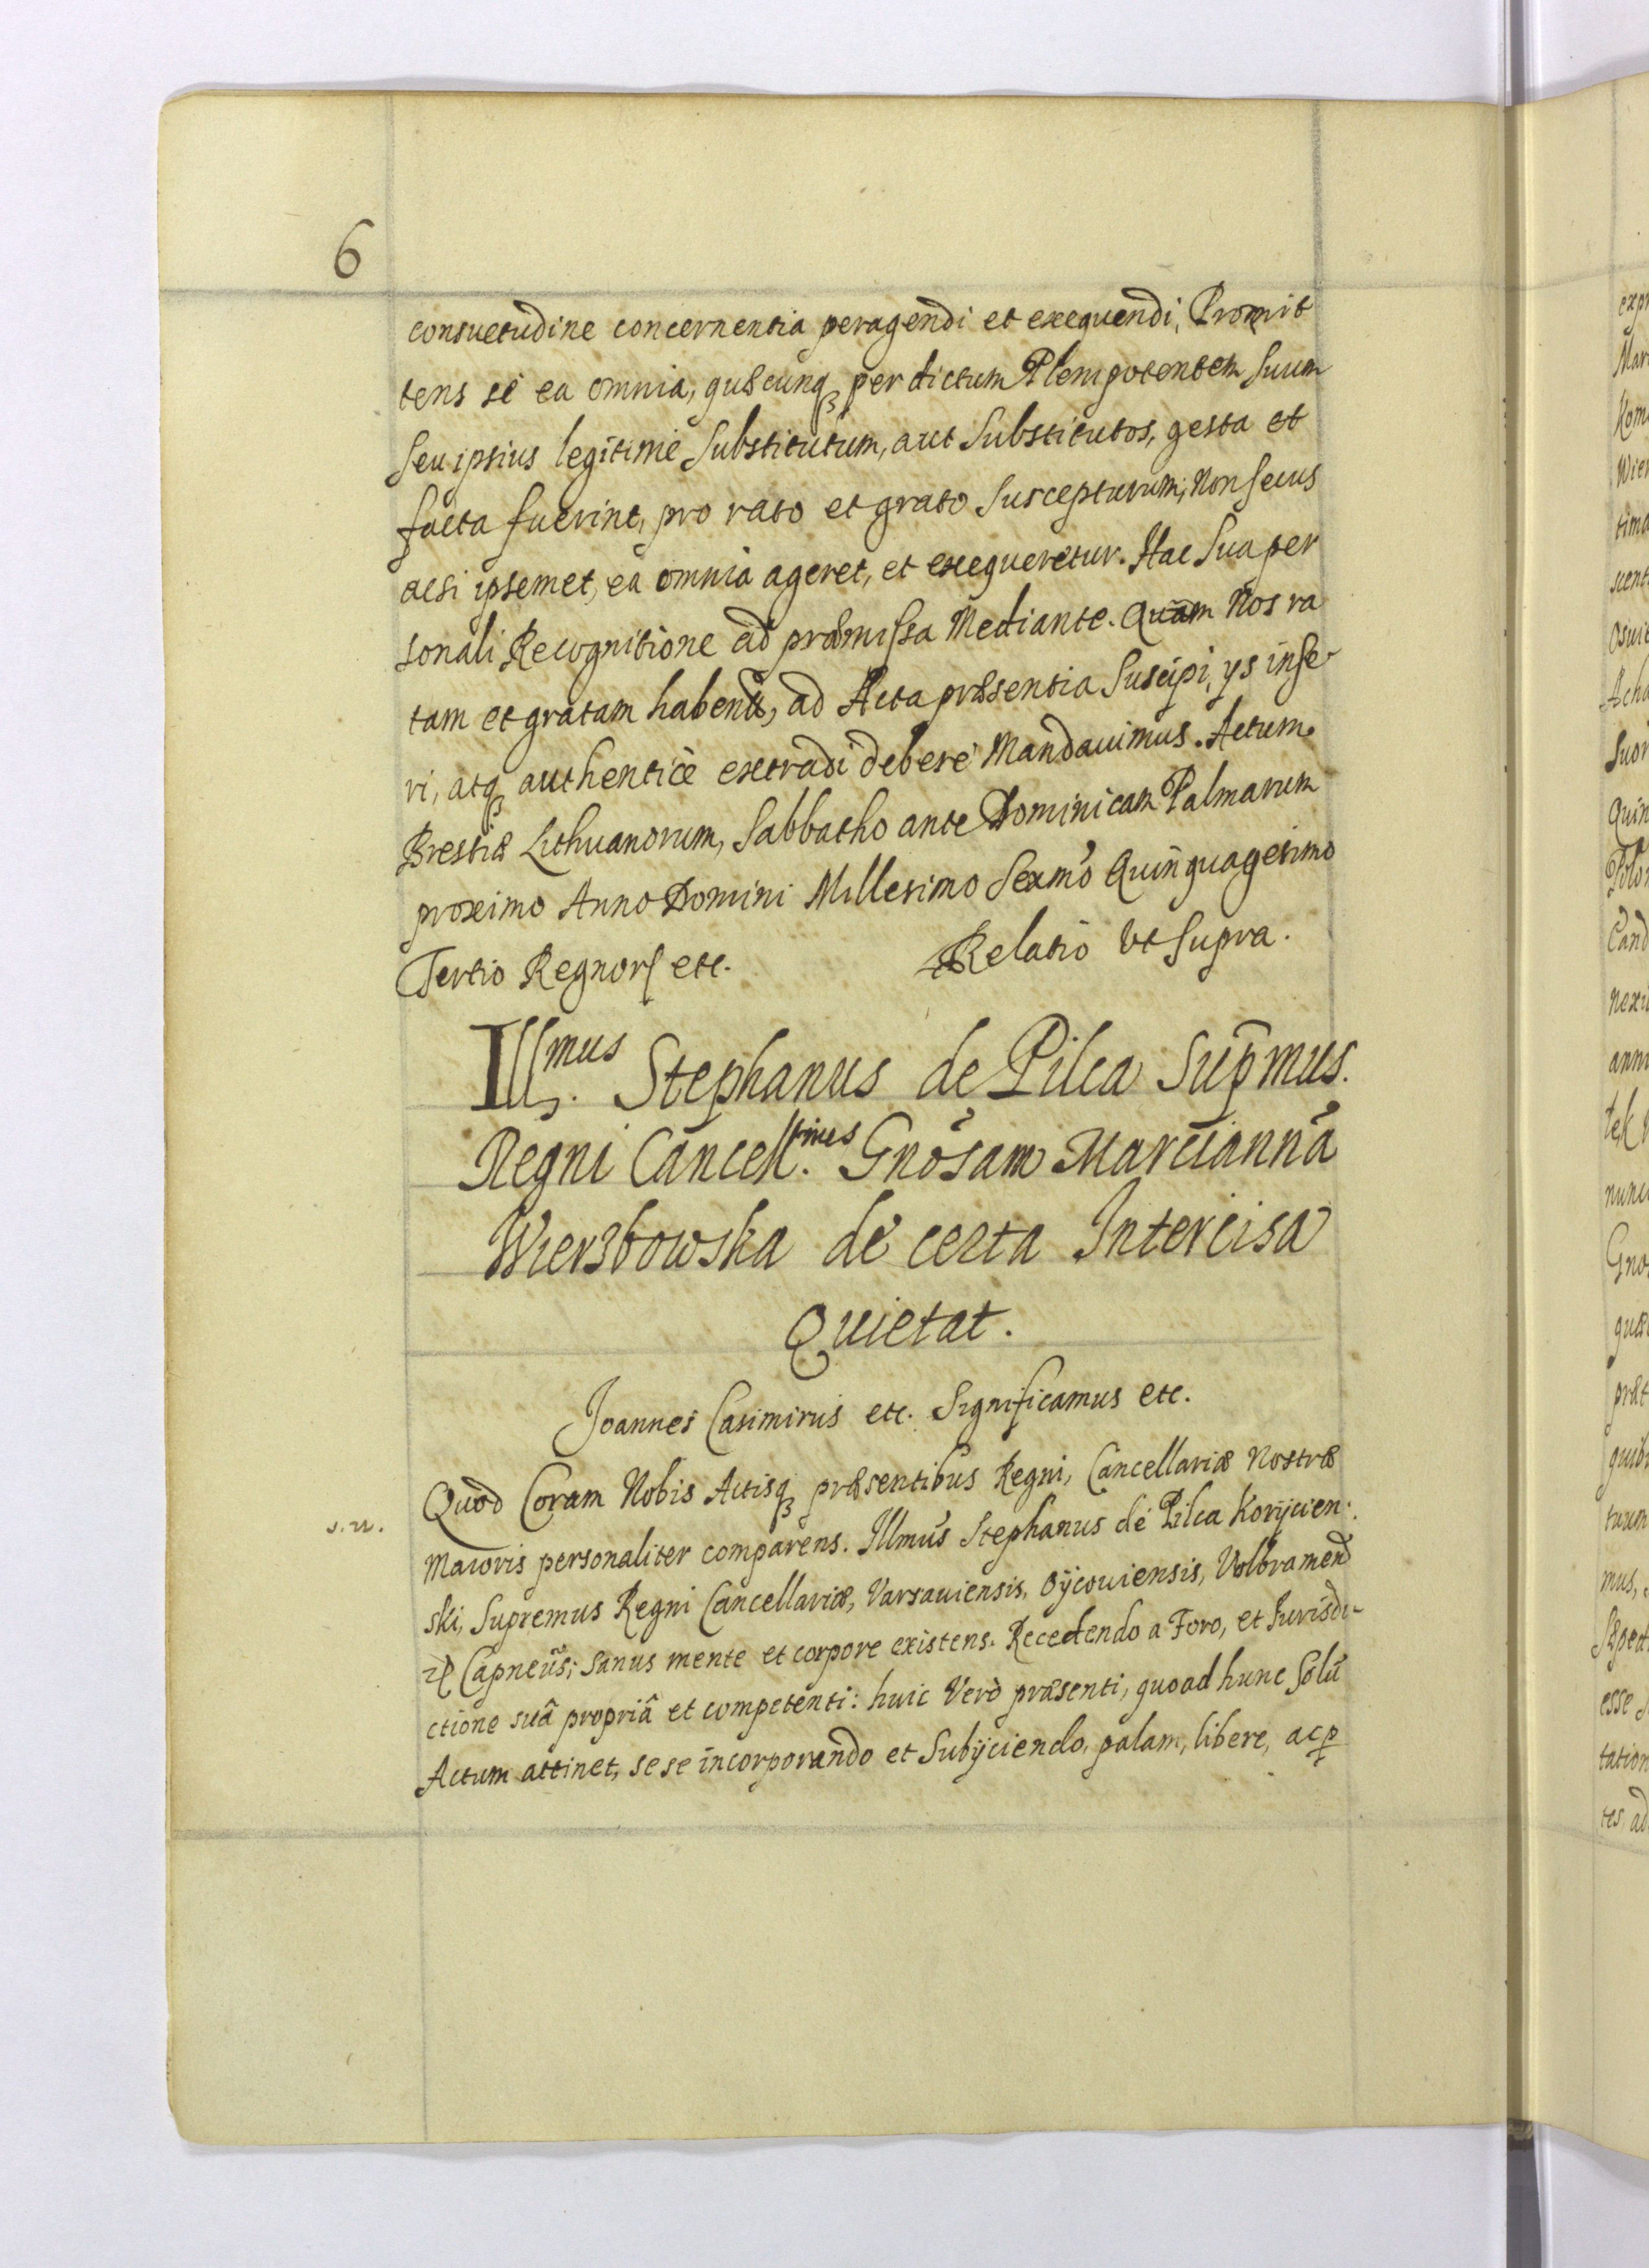 6
consuetudine concernentia peragendi et exequendi, Promit
tens se ea omnia, quæcunqꝫ per dictum Plenipotentem Suum
Seu ipsius legitime Substitutum, aut Substitutos, gesta et
facta fuerint, pro rato et grato Suscepturum; Non secus
acsi ipsemet, ea omnia ageret, et exequeretur. Hac Sua per
sonali Recognitione ad præmissa Mediante. Quam Nos ra
tam et gratam habentes, ad Acta præsentia Suscipi, ys inse
ri, atqꝫ authenticè extradi debere Mandauimus. Actum
Brestiæ Lithuanorum, Sabbatho ante Dominicam Palmarum
proximo Anno Domini Millesimo Sexmo Quinquagesimo
Tertio Regnorꝝ etc. Relatio Vt Supra.
Illmus. Stephanus de Pilca Sup̄mus.
Regni Cancell.rius Gnosam Marciannā
Wierzbowska de certa Intercisa
Quietat.
Joannes Casimirus etc. Significamus etc.
Quod Coram Nobis Actisqꝫ præsentibus Regni, Cancellariæ Nostræ
s.n.
Maioris personaliter comparens. Illmus Stephanus de Pilca Korycien:
ski, Supremus Regni Cancellariæ, Varsauiensis, Oÿcouiensis, Volbramen
Capneūs; Sanus mente et corpore existens. Recedendo a Foro, et Jurisdi-
ctione suâ propriâ et competenti: huic Verò præsenti, quoad hunc Solū
Actum attinet, sese incorporando et Subÿciendo, palam, libere, ac ꝑ
expr
Mar
Kom
Wier
tima
scent
Osvie
Acha
Suor
Quin
Polon
Cand
nexu
ann
tek
nunc
Gnos
quæ
præt
quib
tuum
mus,
Sæped
esse
tation
tes, ad